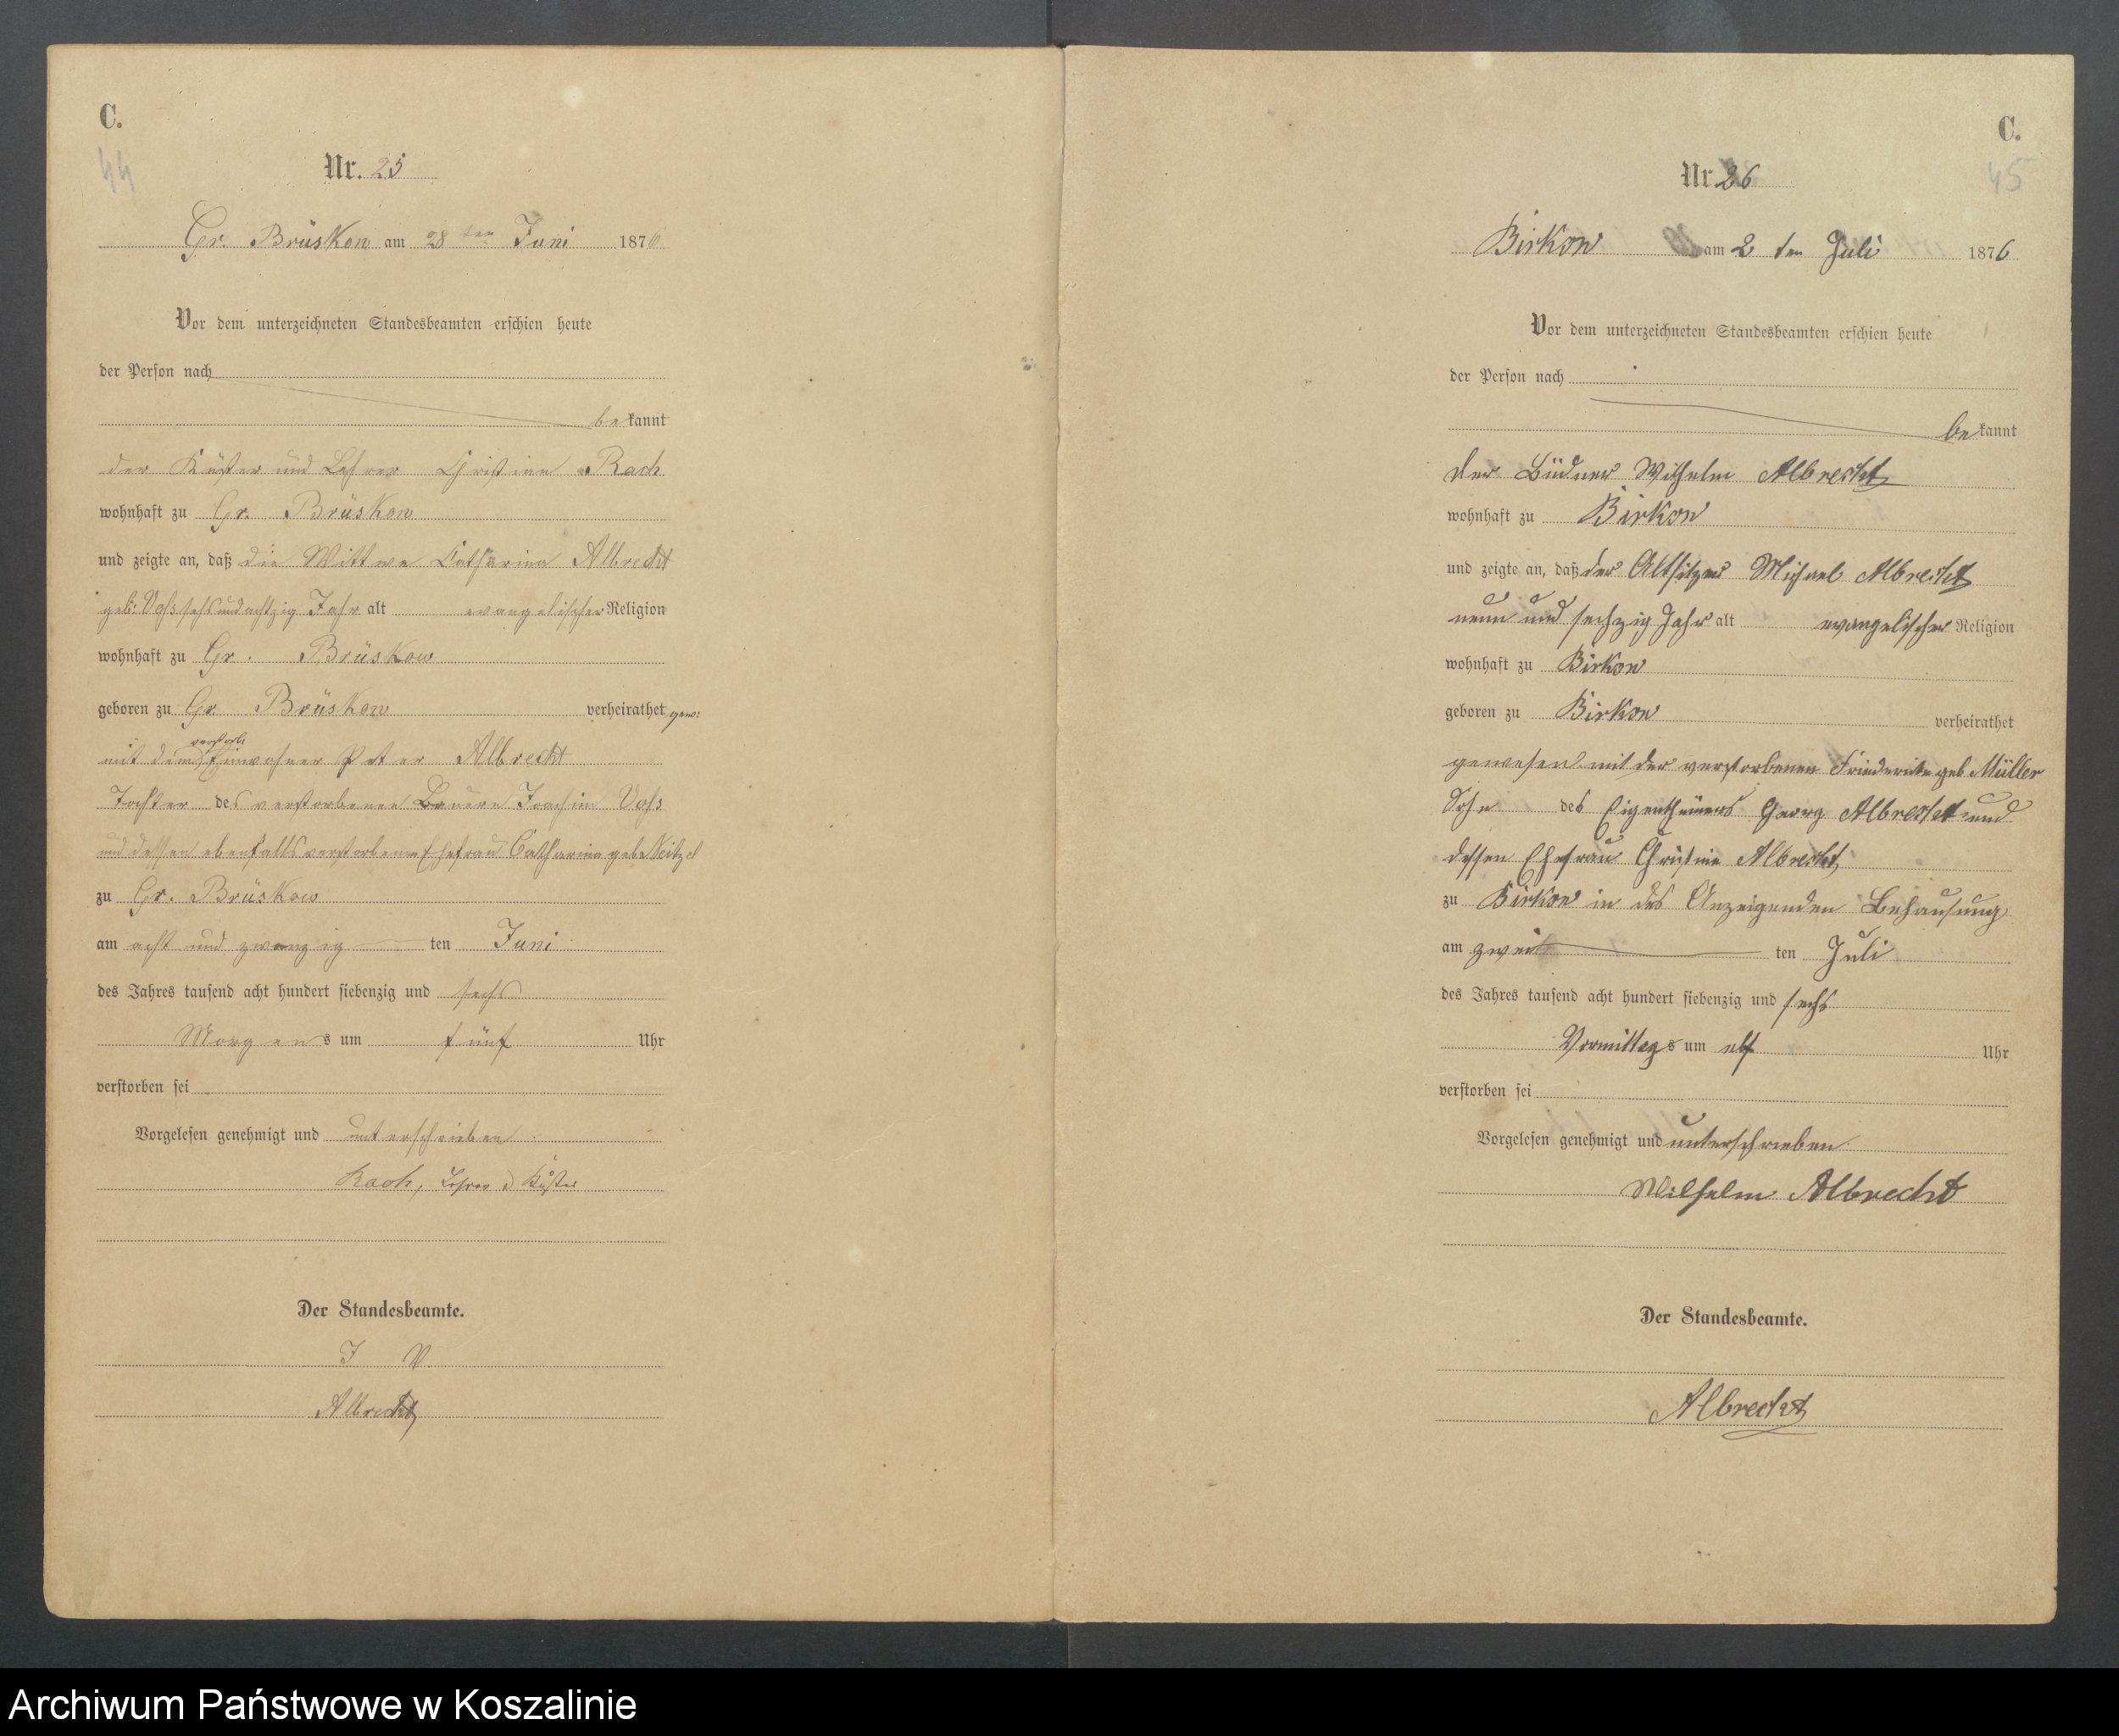 C.
44
Nr. 25
Gr. Brüskow am 28 ten Juni 1876
Vor dem unterzeichneten Standesbeamten erschien heute
der Person nach
bekannt
der Küster und Lehrer Rach
wohnhaft zu Gr. Brüskow
und zeigte an, daß die Wittwe Catharina Albrecht
geb: Voss sechsundachtzig Jahr alt evangelischer Religion
wohnhaft zu Gr. Brüskow
geboren zu Gr Brüskow verheirathet gew:
mit dem verstorb. Einwohner Peter Albrecht
Tochter des verstorbenen Bauern Joachim Voss
und dessen ebenfalls verstorbenen Ehefrau Catharina geb. Neitzel
zu Gr. Brüskow
am acht und zwanzig ten Juni
des Jahres tausend acht hundert siebenzig und sechs
Morgens um fünf Uhr
verstorben sei
Vorgelesen genehmigt und unterschrieben
Rach, Lehrer u Küster
Der Standesbeamte.
J V
Albrecht
C.
45
Nr 26
Birkow am 2 ten Juli 1876
Vor dem unterzeichneten Standesbeamten erschien heute
der Person nach
bekannt
der Büdner Wilhelm Albrecht
wohnhaft zu Birkow
und zeigte an, daß der Altsitzer Michael Albrecht
neun und sechzig Jahr alt evangelischer Religion
wohnhaft zu Birkow
geboren zu Birkow verheirathet
gewesen mit der verstorbenen Friederike geb Müller
Sohn des Eigenthümers Georg Albrecht und
dessen Ehefrau Christine Albrecht
zu Birkow in des Anzeigenden Behausung
am zwei ten Juli
des Jahres tausend acht hundert siebenzig und sechs
Vormittags um elf Uhr
verstorben sei
Vorgelesen genehmigt und unterschrieben
Wilhelm Albrecht
Der Standesbeamte.
Albrecht
Archiwum Państwowe w Koszalinie